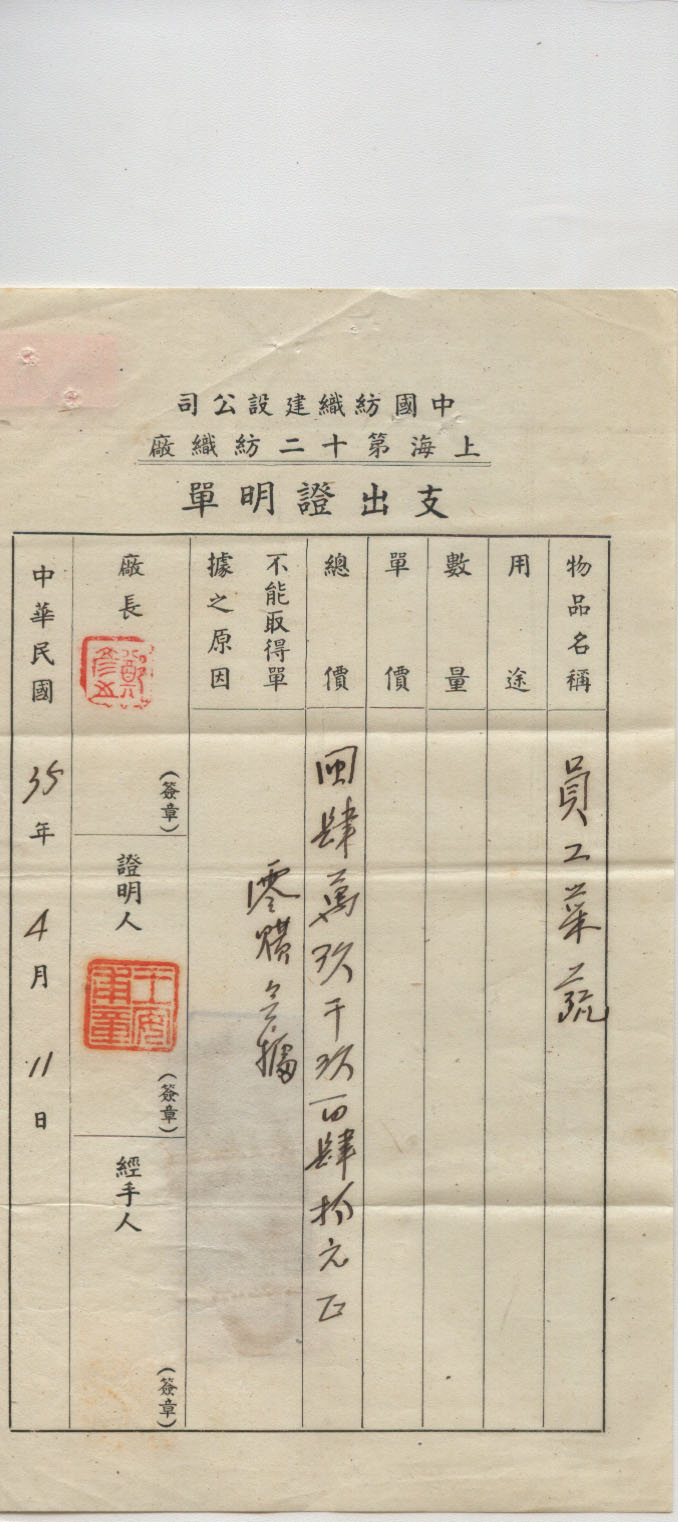 中國紡織建設公司
上海第十二紡織廠
支出證明單
物品名稱
員工菜蔬
用途
數量
單價
總價
肆萬玖千玖百肆拾元正
不能取得單
據之原因
零購無據
廠長
鄭彥
(簽章)
證明人
王
章
(簽章)
經手人
(簽章)
中華民國
35年4月11日